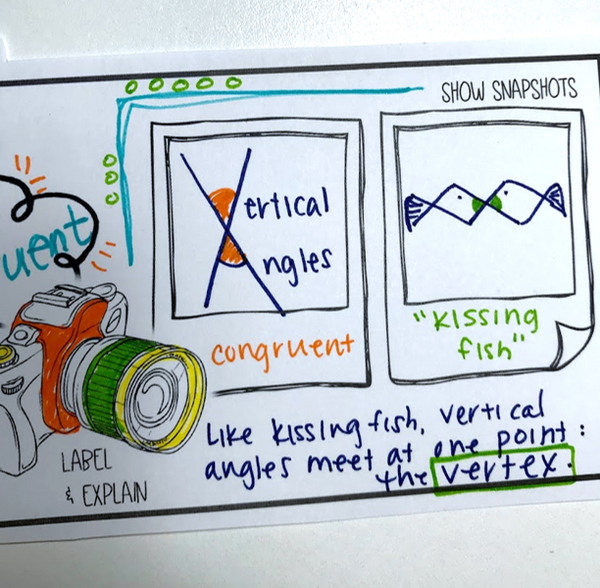 SHOW SNAPSHOTS
uent
Vertical
Angles
congruent
"kissing
fish"
LABEL
& EXPLAIN
Like kissing fish, vertical
angles meet at one point:
the vertex.